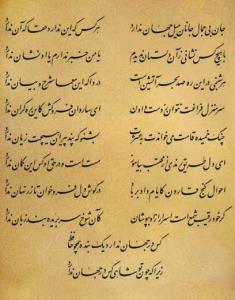 جان بی جمال جانان میل جهان ندارد هر کس که این ندارد حقا که آن ندارد
با هیچ کس نشانی زان دلستان ندیدم یا من خبر ندارم یا او نشان ندارد
هر شبنمی در این ره صد بحر آتشین است دردا که این معما شرح و بیان ندارد
سرمنزل فراغت نتوان ز دست دادن ای ساروان فروکش کاین ره کران ندارد
چنگ خمیده قامت می‌خواندت به عشرت بشنو که پند پیران هیچت زیان ندارد
ای دل طریق رندی از محتسب بیاموز مست است و در حق او کس این گمان ندارد
احوال گنج قارون کایام داد بر باد در گوش دل فروخوان تا زر نهان ندارد
گر خود رقیب شمع است اسرار از او بپوشان کان شوخ سربریده بند زبان ندارد
کس در جهان ندارد یک بنده همچو حافظ
زیرا که چون تو شاهی کس در جهان ندارد